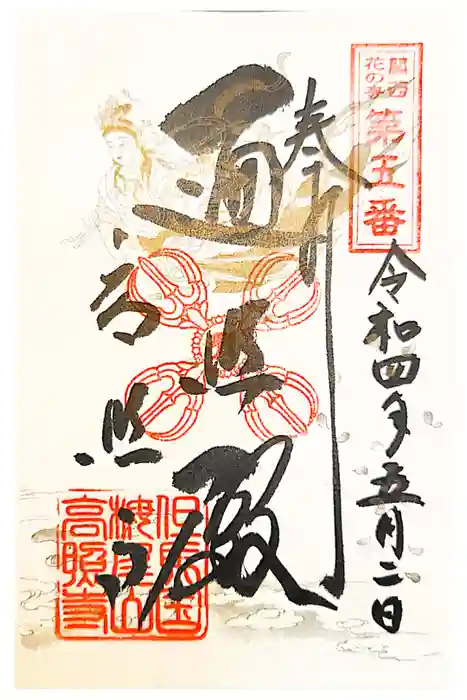 関西
花の寺
第五番
奉拝
令和四年五月二日
遍照殿
高照寺
但馬国
高照寺